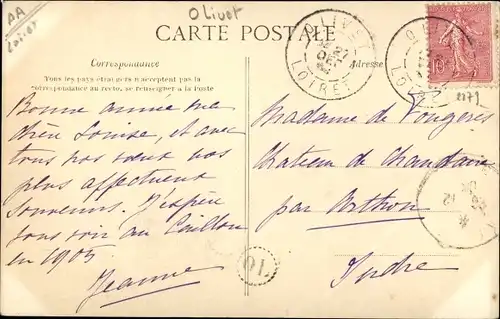 AA
Loiret
Olivet
CARTE POSTALE
Correspondance
Tous les pays étrangers n'acceptent pas la
correspondance au recto, se renseigner à la Poste
Adresse
OLIVET
27
LOIRET
10
2171
Bonne année ma
chère Louise, et avec
tous nos vœux nos
plus affectueux
souvenirs. J'espère
vous voir au Caillou
en 1905
Jeanne
Madame de Fougères
Château de
par Arthon
Indre
12